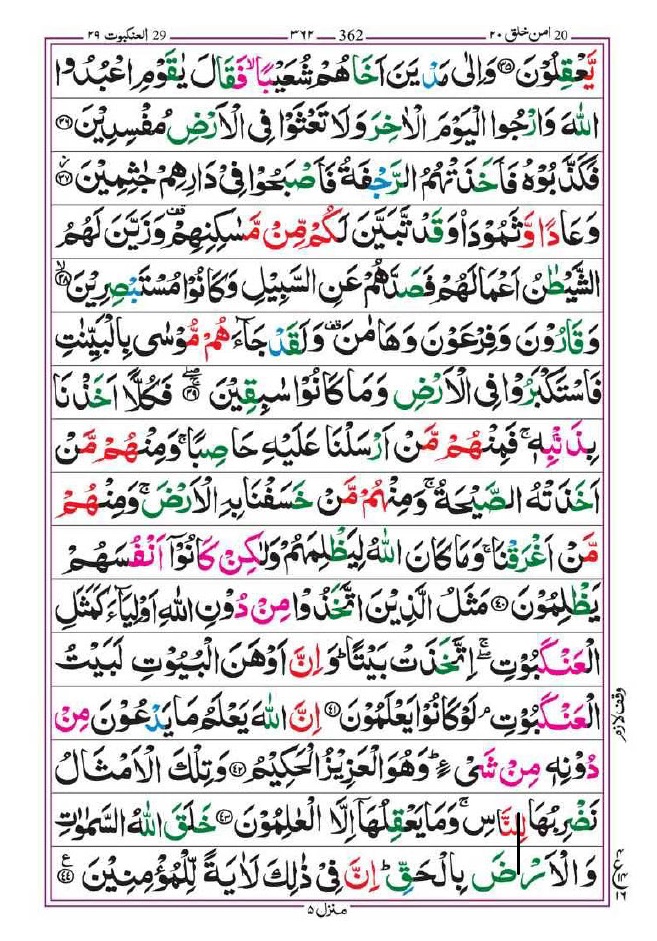 20 امن خلق ۲۰ 362 ۳٦۲ 29 العنکبوت ۲۹
یَّعْقِلُوْنَ ۝۳۵ وَ اِلٰی مَدْیَنَ اَخَاهُمْ شُعَیْبًا ۙ فَقَالَ یٰقَوْمِ اعْبُدُوا
اللّٰهَ وَ ارْجُوا الْیَوْمَ الْاٰخِرَ وَ لَا تَعْثَوْا فِی الْاَرْضِ مُفْسِدِیْنَ ۝۳۶
فَكَذَّبُوْهُ فَاَخَذَتْهُمُ الرَّجْفَةُ فَاَصْبَحُوْا فِیْ دَارِهِمْ جٰثِمِیْنَ ۝۳۷
وَ عَادًا وَّ ثَمُوْدَاۡ وَ قَدْ تَّبَیَّنَ لَكُمْ مِّنْ مَّسٰكِنِهِمْ ۫ وَ زَیَّنَ لَهُمُ
الشَّیْطٰنُ اَعْمَالَهُمْ فَصَدَّهُمْ عَنِ السَّبِیْلِ وَ كَانُوْا مُسْتَبْصِرِیْنَ ۝۳۸ۙ
وَ قَارُوْنَ وَ فِرْعَوْنَ وَ هَامٰنَ ۫ وَ لَقَدْ جَآءَهُمْ مُّوْسٰی بِالْبَیِّنٰتِ
فَاسْتَكْبَرُوْا فِی الْاَرْضِ وَ مَا كَانُوْا سٰبِقِیْنَ ۝۳۹ فَكُلًّا اَخَذْنَا
بِذَنْۢبِهٖ ۚ فَمِنْهُمْ مَّنْ اَرْسَلْنَا عَلَیْهِ حَاصِبًا ۚ وَ مِنْهُمْ مَّنْ
اَخَذَتْهُ الصَّیْحَةُ ۚ وَ مِنْهُمْ مَّنْ خَسَفْنَا بِهِ الْاَرْضَ ۚ وَ مِنْهُمْ
مَّنْ اَغْرَقْنَا ۚ وَ مَا كَانَ اللّٰهُ لِیَظْلِمَهُمْ وَ لٰكِنْ كَانُوْۤا اَنْفُسَهُمْ
یَظْلِمُوْنَ ۝۴۰ مَثَلُ الَّذِیْنَ اتَّخَذُوْا مِنْ دُوْنِ اللّٰهِ اَوْلِیَآءَ كَمَثَلِ
الْعَنْكَبُوْتِ ۖۚ اِتَّخَذَتْ بَیْتًا ؕ وَ اِنَّ اَوْهَنَ الْبُیُوْتِ لَبَیْتُ
الْعَنْكَبُوْتِ ۘ لَوْ كَانُوْا یَعْلَمُوْنَ ۝۴۱ اِنَّ اللّٰهَ یَعْلَمُ مَا یَدْعُوْنَ مِنْ
دُوْنِهٖ مِنْ شَیْءٍ ؕ وَ هُوَ الْعَزِیْزُ الْحَكِیْمُ ۝۴۲ وَ تِلْكَ الْاَمْثَالُ
نَضْرِبُهَا لِلنَّاسِ ۚ وَ مَا یَعْقِلُهَاۤ اِلَّا الْعٰلِمُوْنَ ۝۴۳ خَلَقَ اللّٰهُ السَّمٰوٰتِ
وَ الْاَرْضَ بِالْحَقِّ ؕ اِنَّ فِیْ ذٰلِكَ لَاٰیَةً لِّلْمُؤْمِنِیْنَ ۝۴۴
وقف لازم
ع ۴ ۱۴ ۱٦
منزل ۵